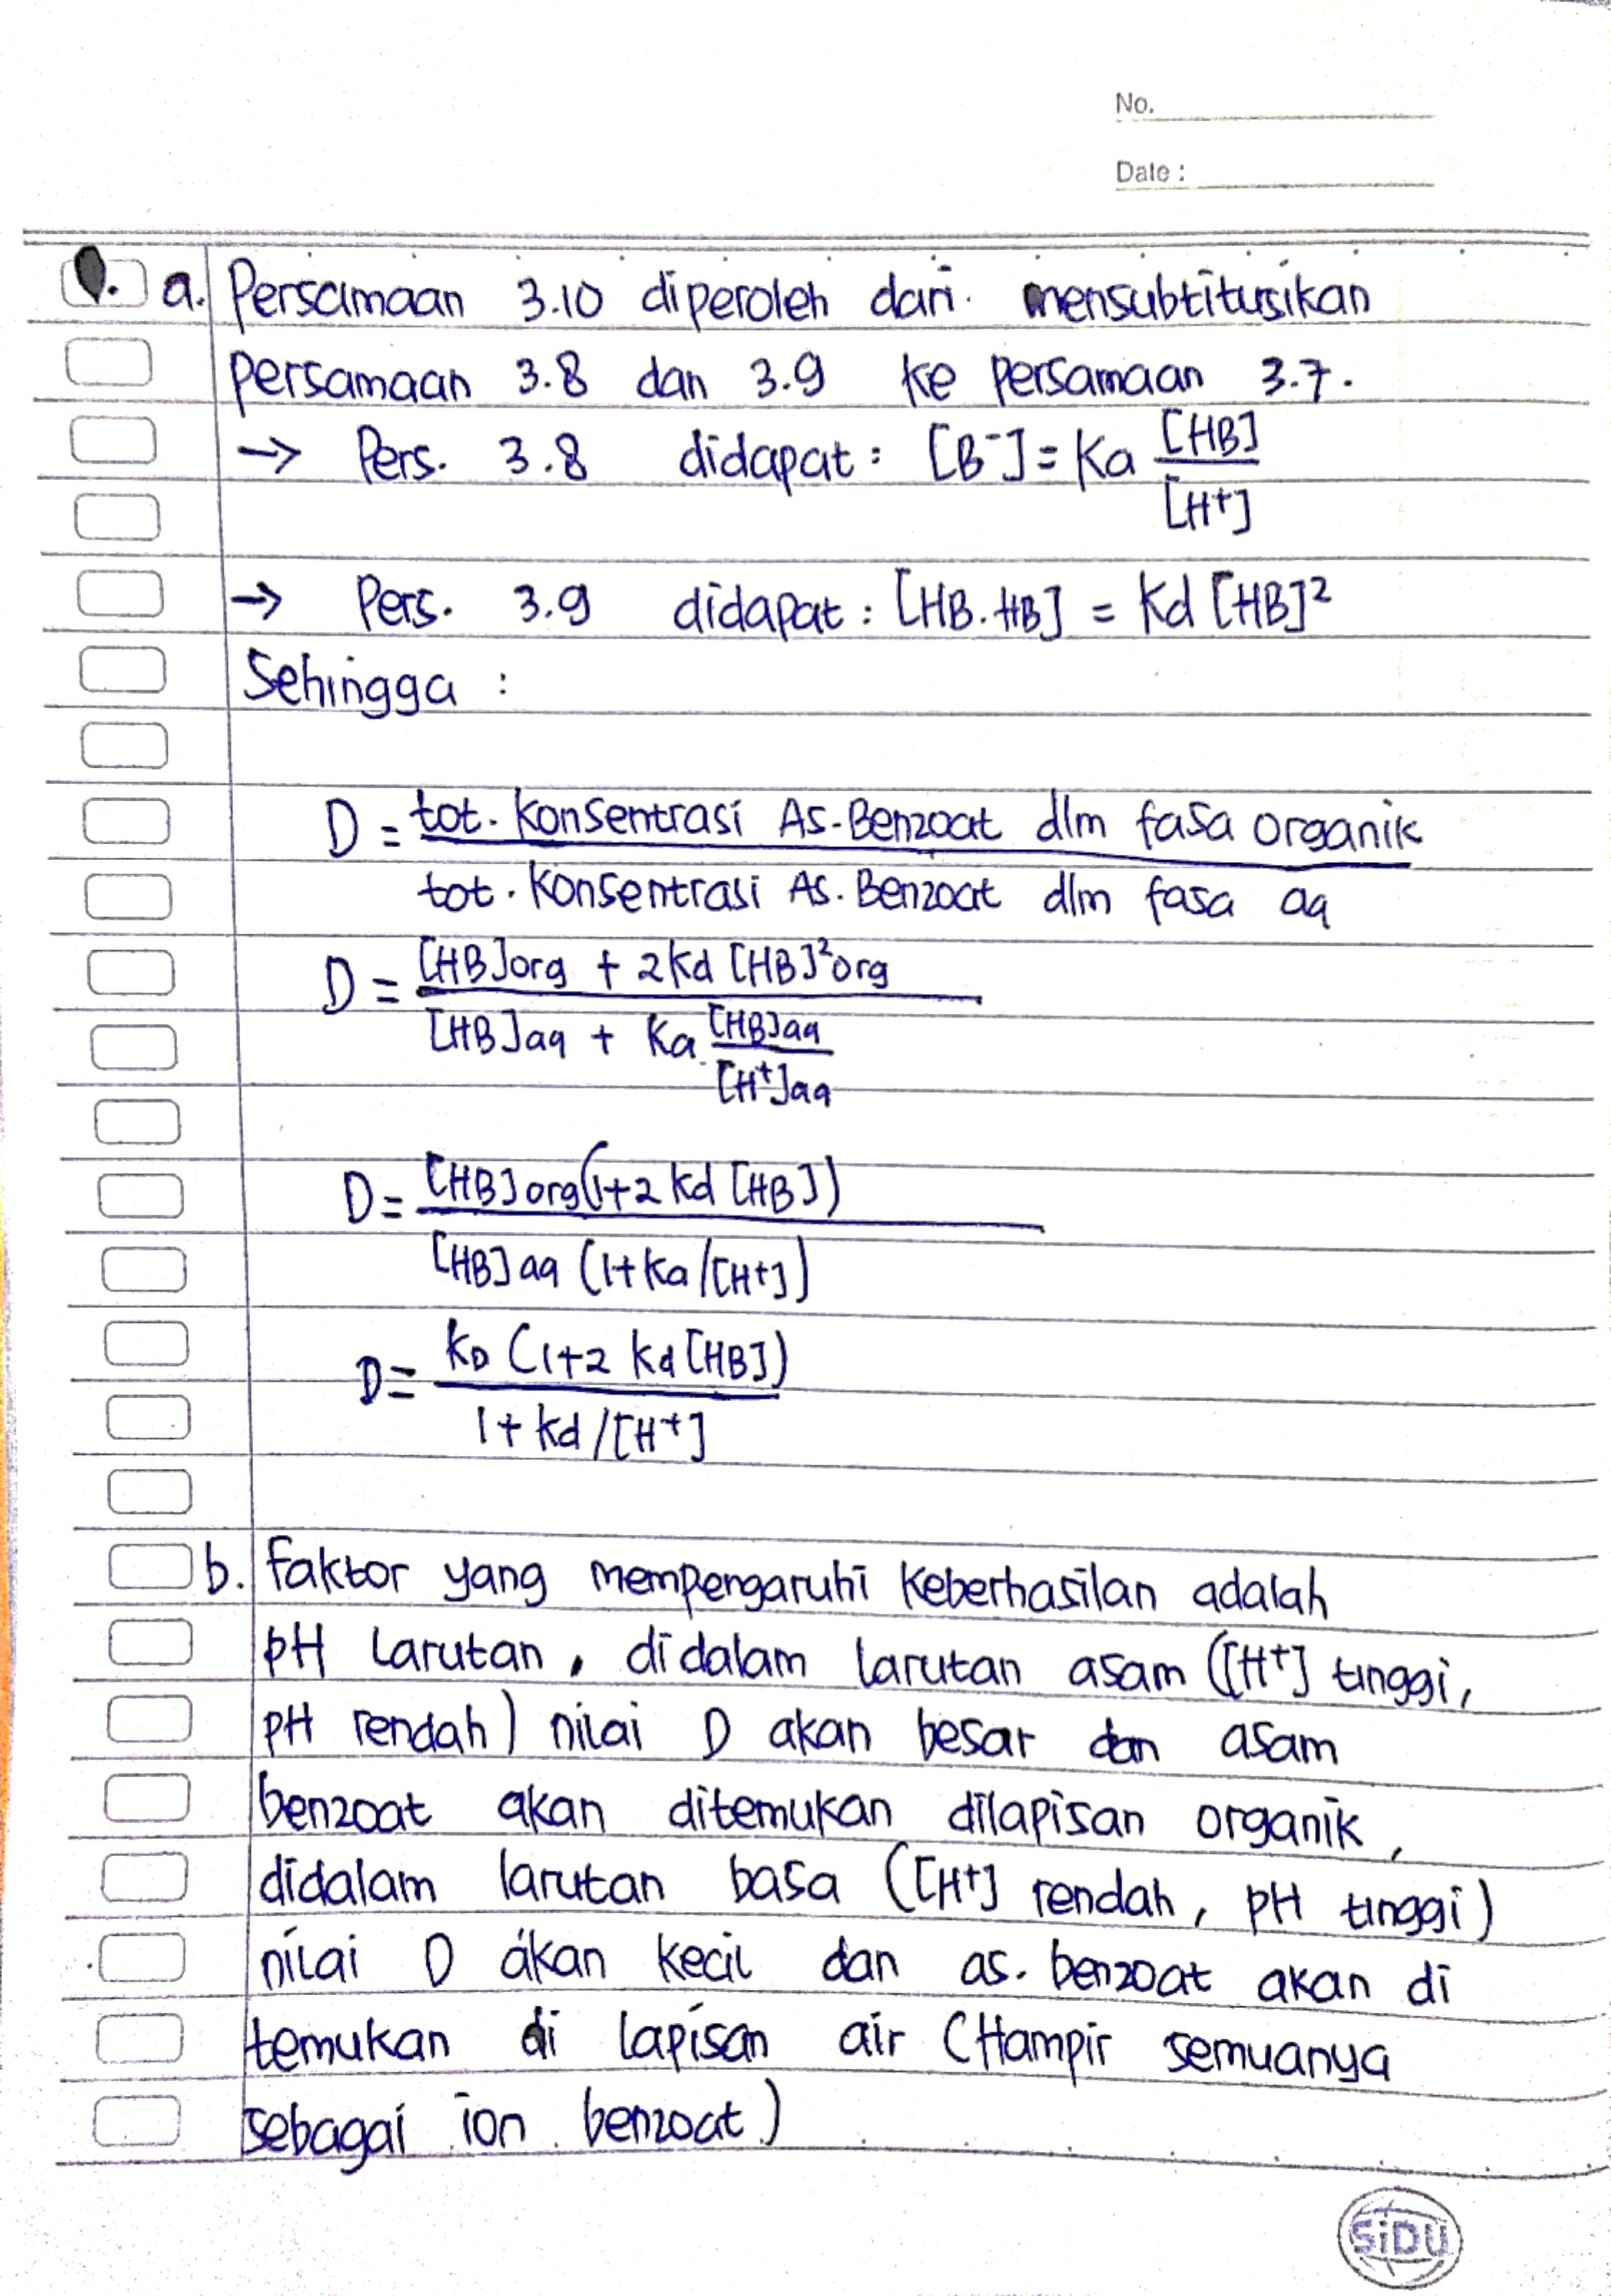 No.
Date :
1. a. Persamaan 3.10 diperoleh dari mensubtitusikan
persamaan 3.8 dan 3.9 ke persamaan 3.7.
→ Pers. 3.8 didapat : [B⁻] = Ka [HB]
[H⁺]
→ Pers. 3.9 didapat : [HB.HB] = Kd [HB]²
Sehingga :
D = tot. Konsentrasi As-Benzoat dlm fasa organik
tot. Konsentrasi As. Benzoat dlm fasa aq
D = [HB]org + 2Kd [HB]²org
[HB]aq + Ka [HB]aq
[H⁺]aq
D = [HB]org(1+2 Kd [HB])
[HB]aq (1+Ka/[H⁺])
D = KD (1+2 Kd [HB])
1 + Kd /[H⁺]
b. faktor yang mempengaruhi keberhasilan adalah
pH Larutan, didalam larutan asam ([H⁺] tinggi,
pH rendah) nilai D akan besar dan asam
benzoat akan ditemukan dilapisan organik,
didalam larutan basa ([H⁺] rendah, pH tinggi)
nilai D akan kecil dan as. benzoat akan di
temukan di lapisan air (Hampir semuanya
sebagai ion benzoat)
SiDU